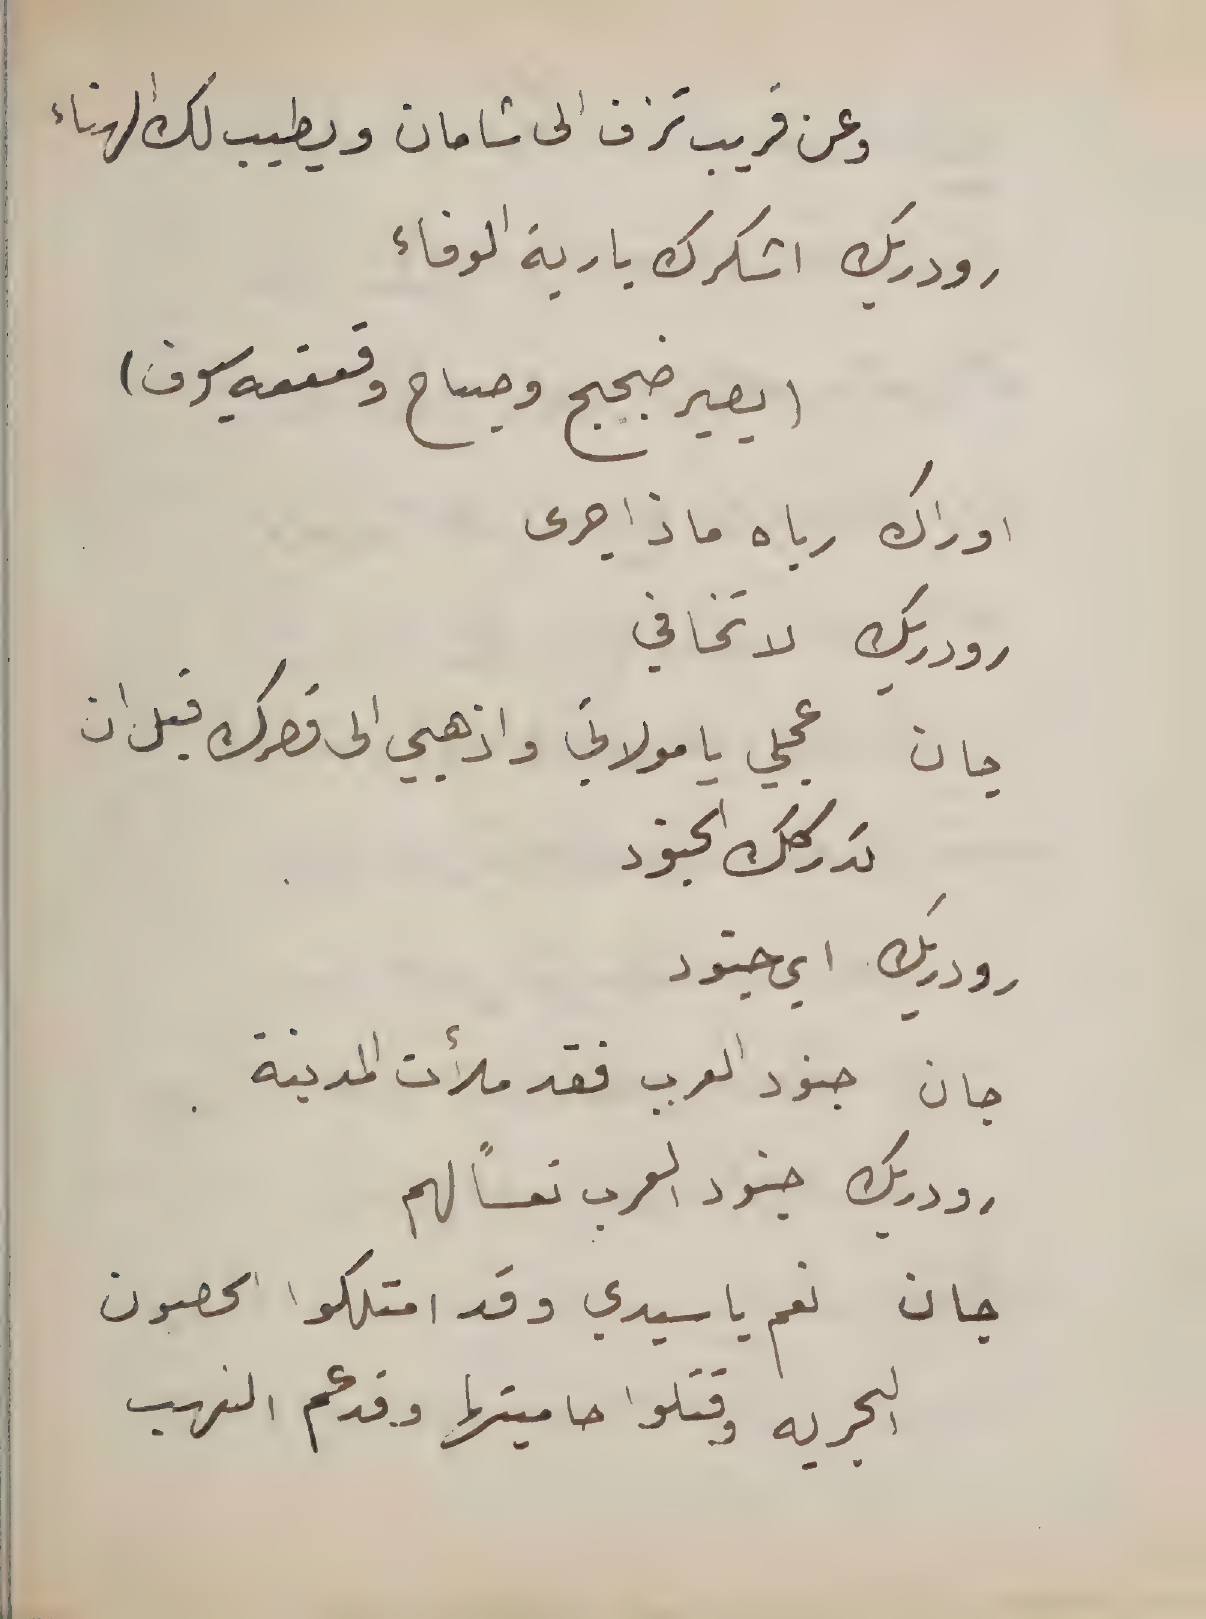 وعن قريب تزف الى شامان ويطيب لك الهناء
رودريك اشكرك يا ربة الوفاء
(يصير ضجيج وصياح وقعقعه سيوف)
اوراك رباه ماذا جرى
رودريك لا تخافي
جان عجلي يا مولاتي واذهبي الى قصرك قبل ان
تدركك الجنود
رودريك اي جنود
جان جنود العرب فقد ملأت المدينة
رودريك جنود العرب تعساً لهم
جان نعم يا سيدي وقد امتلكوا الحصون
البحريه وقتلوا حاميتها وقد عم النهب